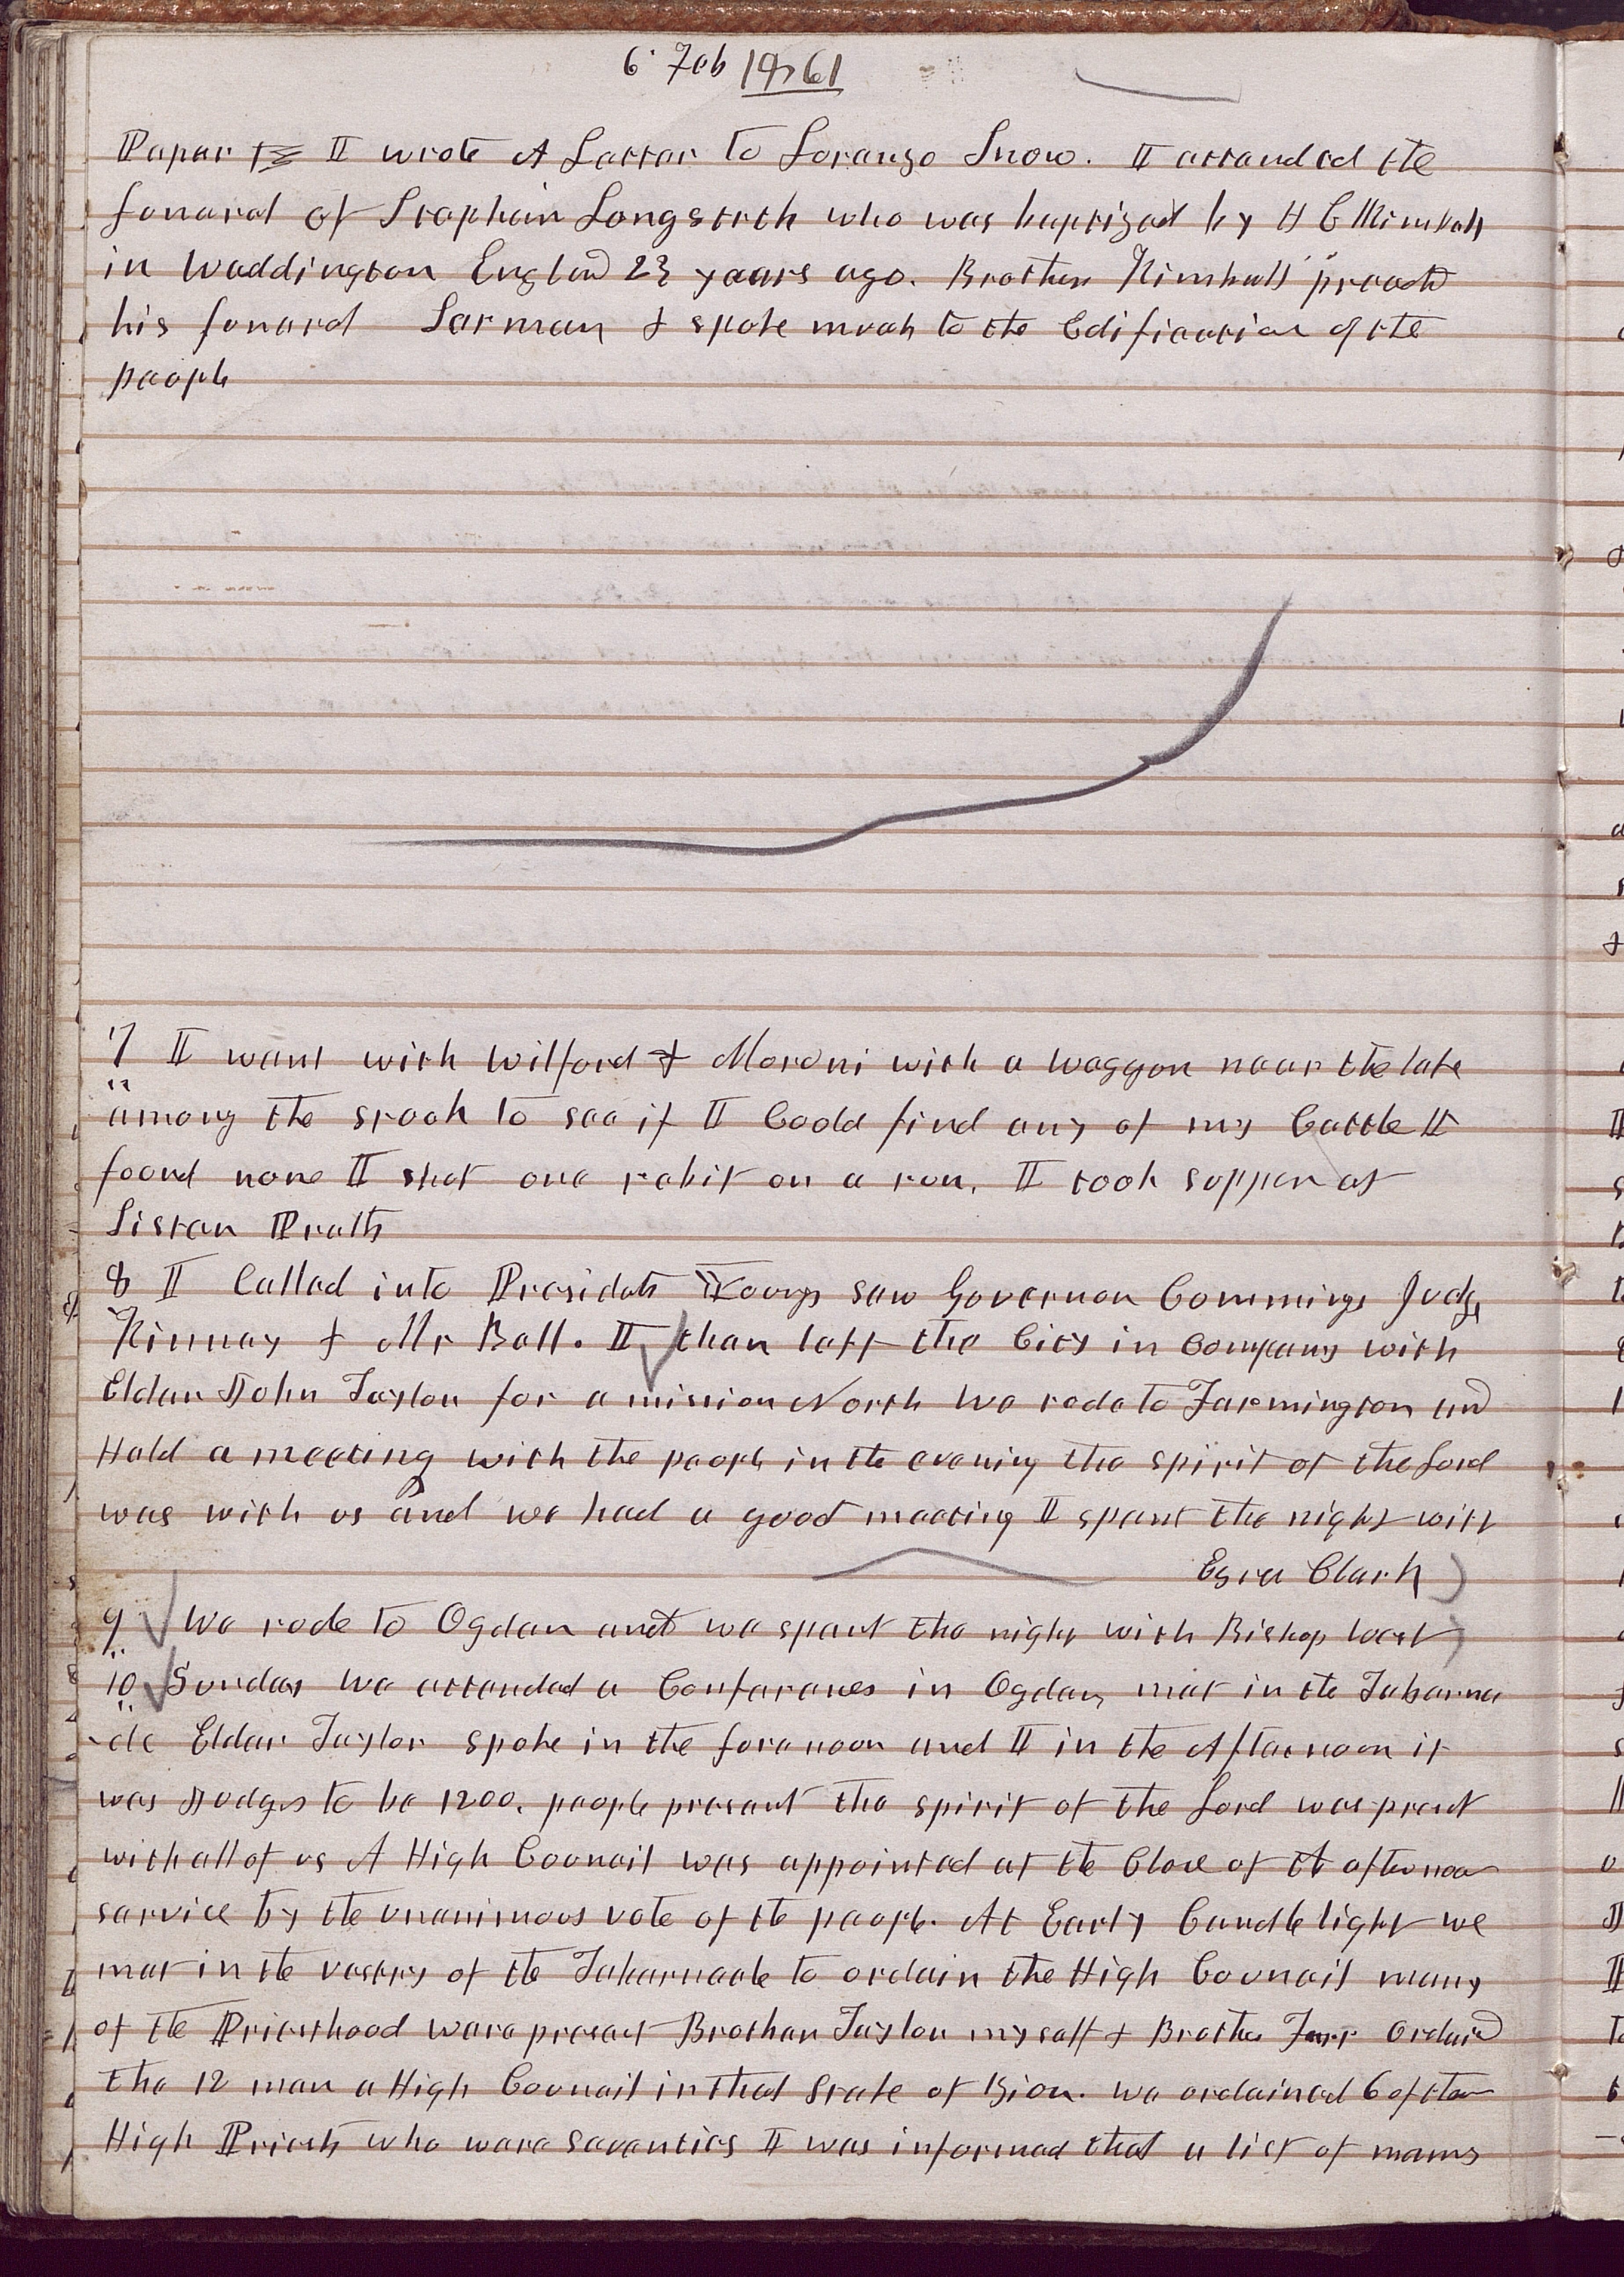 6· Feb 1861
Paper I wrote A Letter to Lorenzo Snow. I attended the
funeral of Stephen Longstrth who was baptized by H C Kimball
in Waddington England 23 years ago. Brother Kimball preached
his funeral Sermon & spoke much to the Edification of the
people
7 I went with Wilford & Moroni with a waggon near the lake
among the stock to see if I Could find any of my Cattle I
found none I shot one rabit on a run. I took supper at
Sister Pratts
8 I Called into Presidets Youngs saw Governor Cummings Judge
Kinney & Mr Bell. I then left the City in Company with
Elder John Taylor for a mission North We rode to Farmington and
Held a meeting with the people in the evening the spirit of the Lord
was with us and we had a good meeting I spent the night with
Ezra Clark
9 We rode to Ogden and we spent the night with Bishop West
10 Sunday We attended a Conferance in Ogden, met in the Taberna
-cle Elder Taylor spoke in the forenoon and I in the Afternoon it
was Judged to be 1200. people present the spirit of the Lord was preset
with all of us A High Council was appointed at the Close of the afternoon
service by the unanimous vote of the people. At Early Candle light we
met in the vestry of the Tabernacle to ordain the High Council many
of the Priesthood were present Brother Taylor myself & Brother Farr Ordained
the 12 men a High Council in that Stake of Zion. we ordained 6 of them
High Priests who were Seventies I was informed that a list of names